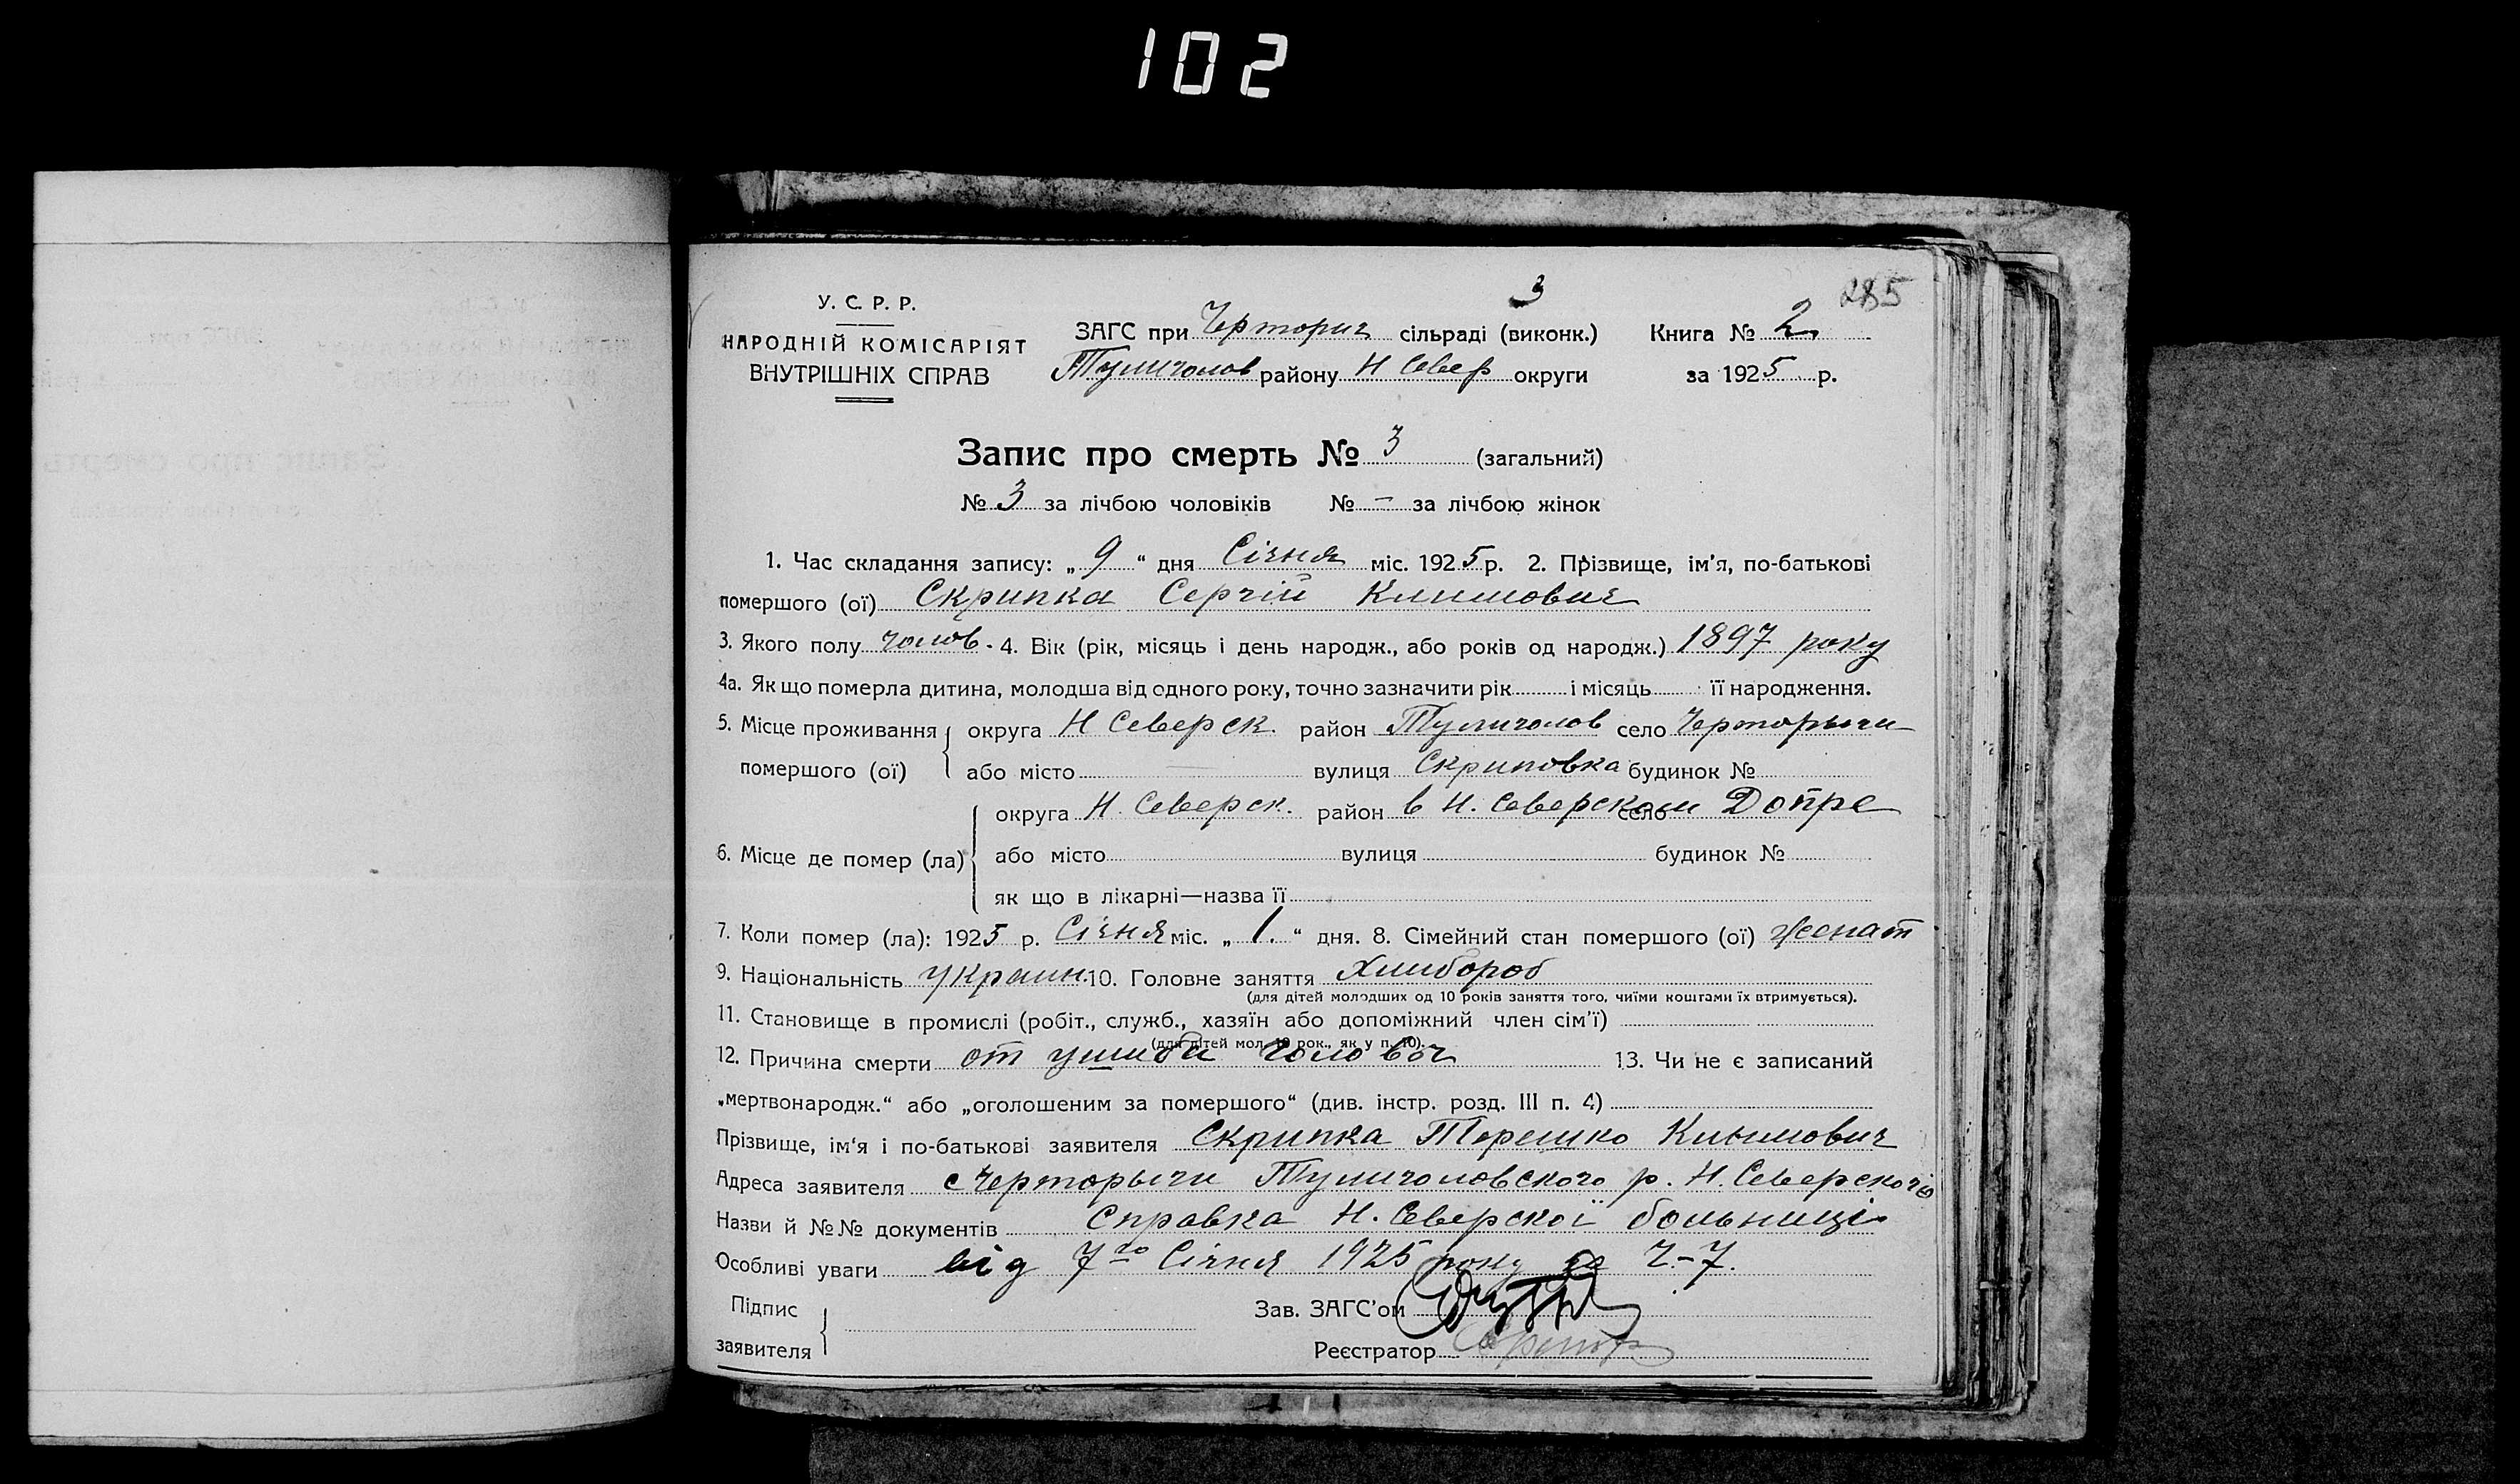 102
3 285
У. С. Р. Р.
НАРОДНІЙ КОМІСАРІЯТ
ВНУТРІШНІХ СПРАВ
ЗАГС при Черторич сільраді (виконк.) Книга № 2
Тулиголов району Н Север округи за 1925 р.
Запис про смерть № 3 (загальний)
№ 3 за лічбою чоловіків № — за лічбою жінок
1. Час складання запису: „ 9 “ дня Січня міс. 1925 р. 2. Прізвище, ім'я, по-батькові
помершого (ої) Скрипка Сергій Климович
3. Якого полу чолов. 4. Вік (рік, місяць і день народж., або років од народж.) 1897 року
4а. Як що померла дитина, молодша від одного року, точно зазначити рік і місяць її народження.
5. Місце проживання округа Н Северск. район Тулиголов село Черторыги
помершого (ої) або місто — вулиця Скриповка будинок №
округа Н. Северск. район в Н. Северском село Допре
6. Місце де помер (ла) або місто вулиця будинок №
як що в лікарні—назва її
7. Коли помер (ла): 1925 р. Січня міс. „ 1. “ дня. 8. Сімейний стан помершого (ої) женат
9. Національність украин. 10. Головне заняття Хлибороб
(для дітей молодших од 10 років заняття того, чиїми коштами їх втримується).
11. Становище в промислі (робіт., служб., хазяїн або допоміжний член сім'ї)
(для дітей мол. 10 рок., як у п. 10).
12. Причина смерти от ушиба 13. Чи не є записаний
„мертвонародж.“ або „оголошеним за помершого“ (див. інстр. розд. III п. 4)
Прізвище, ім'я і по-батькові заявителя Скрипка Терешко Климович
Адреса заявителя с Черторыги Тулиголовского р. Н. Северского
Назви й №№ документів Справка Н. Северскої больниці
Особливі уваги від 7го Січня 1925 року за Ч-7.
Підпис
заявителя
Зав. ЗАГС'ом
Реєстратор